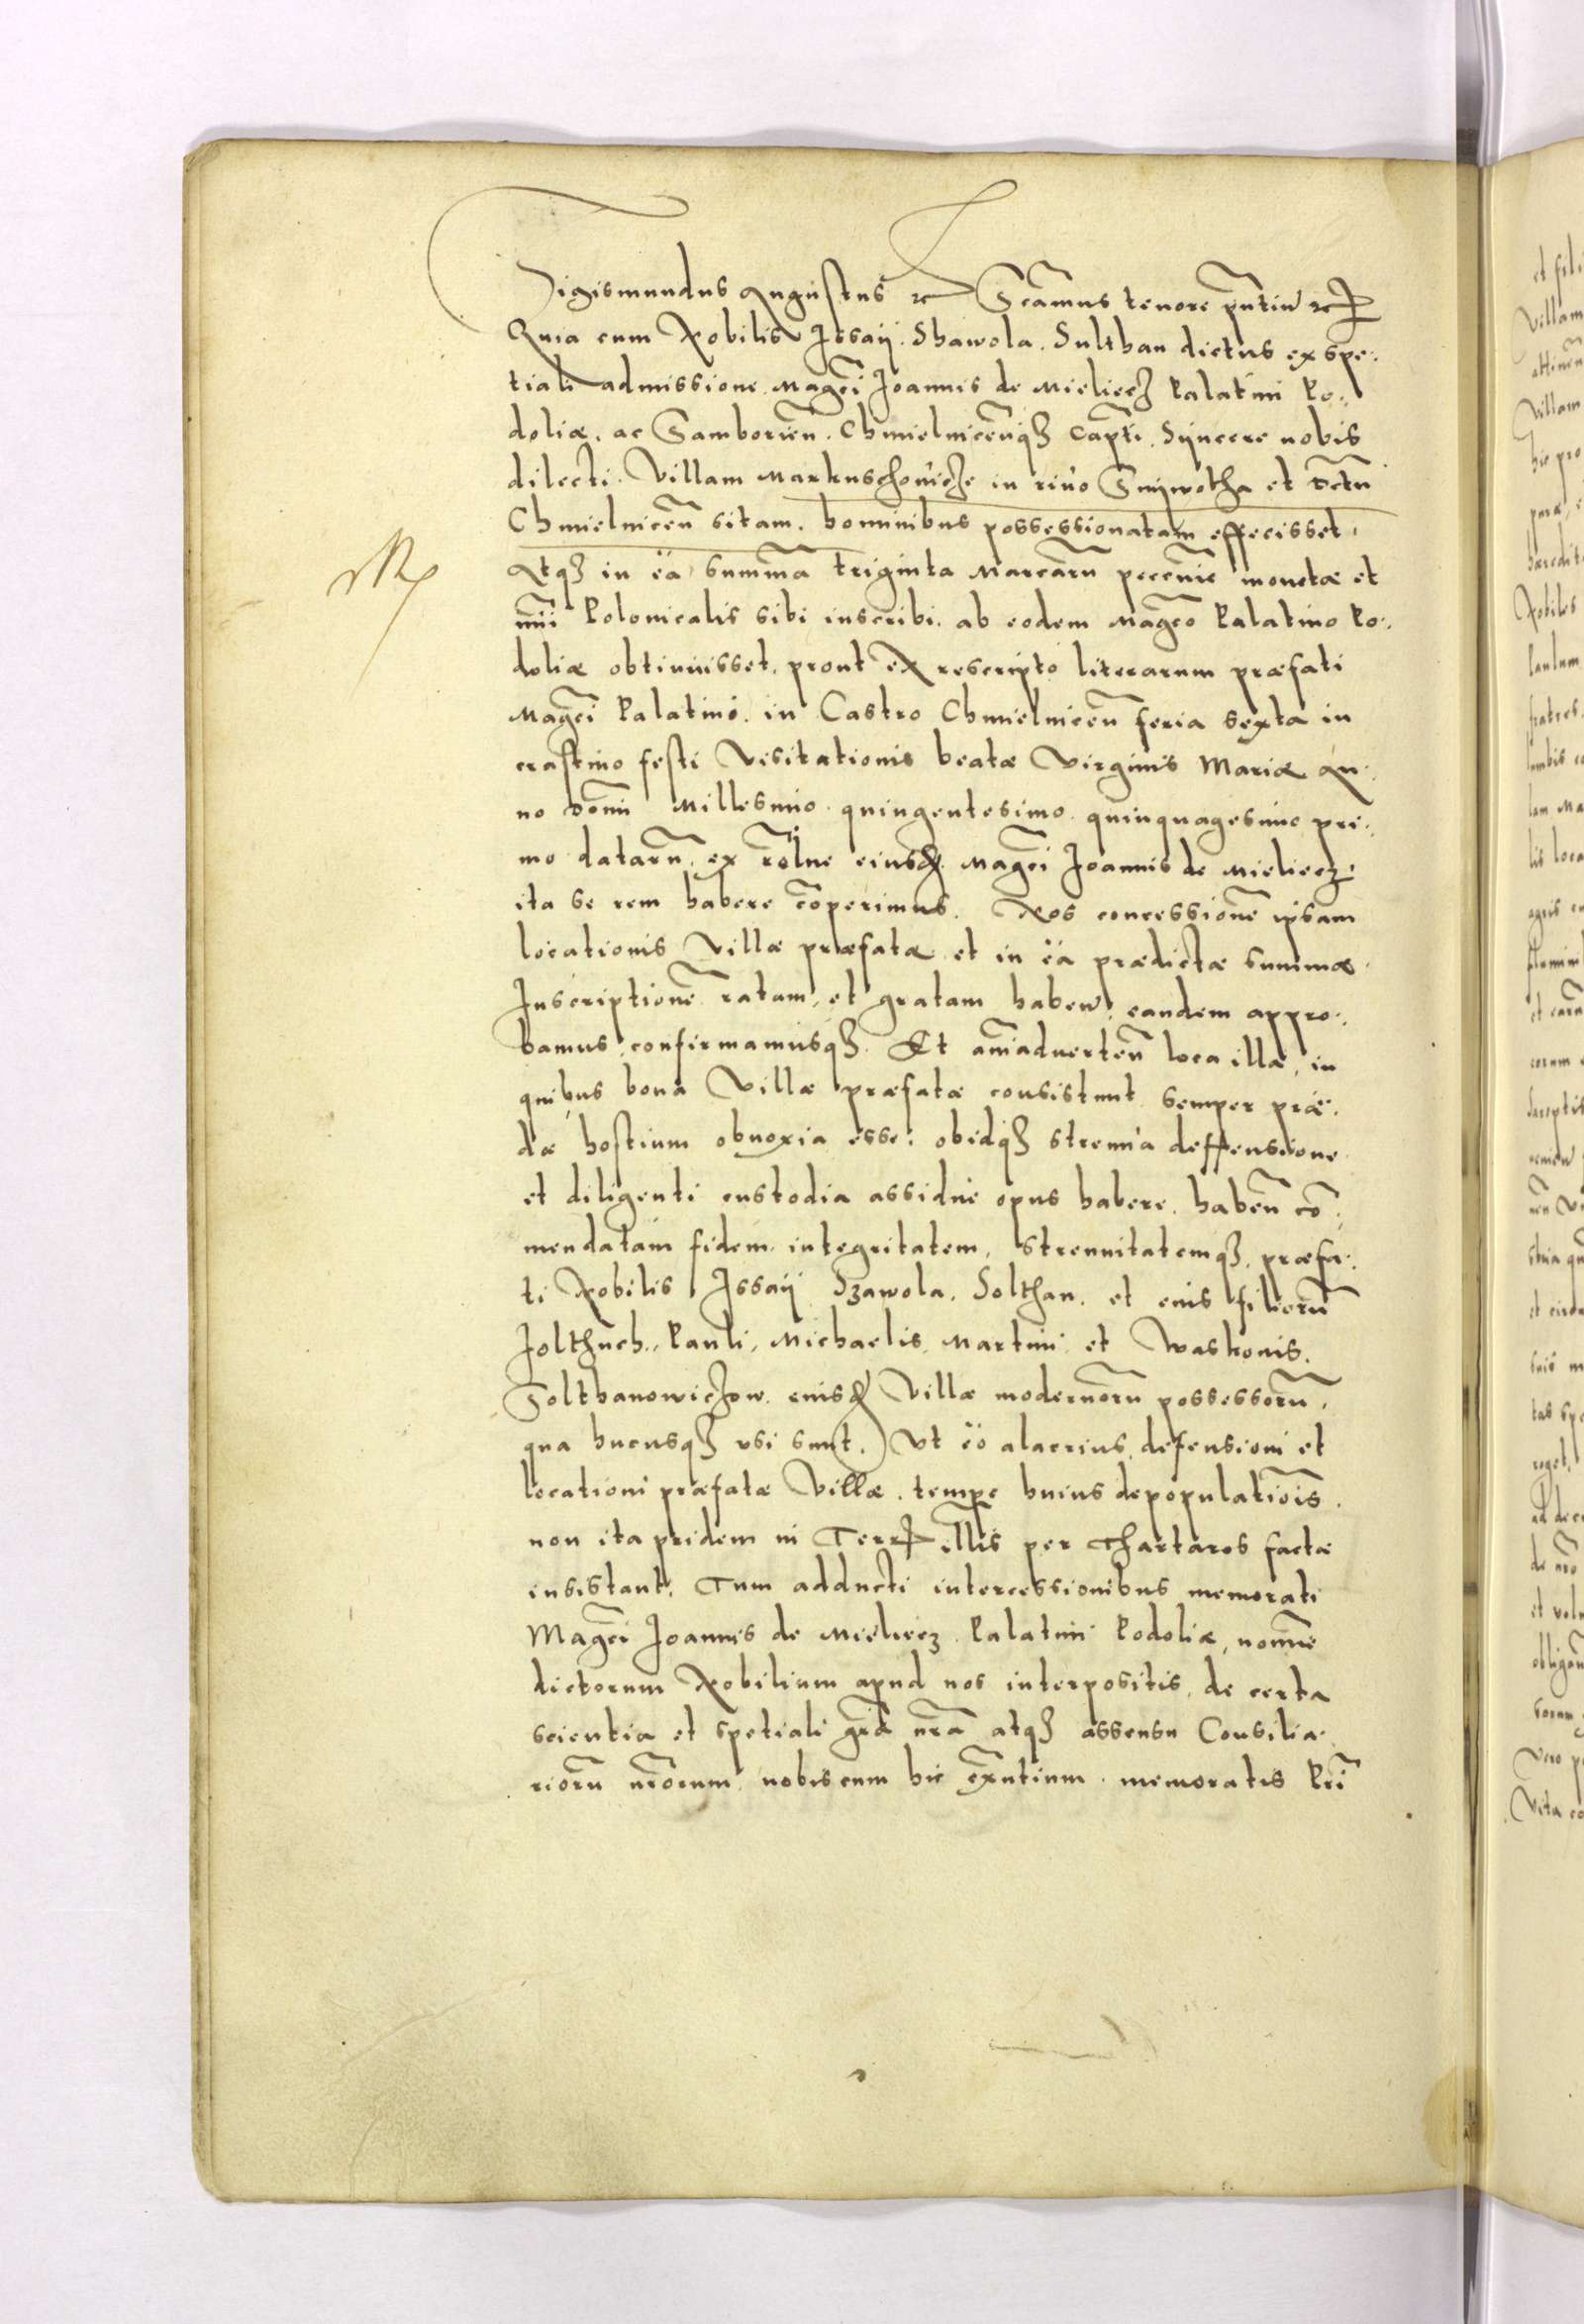 Sigismundus Augustus etc Scãmus tenore pñtiũ etc
Quia cum Nobilis Issaij. Shawola. Sulthan dictus ex spe:
tiali admissione Magcĩ Joannis de Mieliecz Palatini Po:
doliæ, ac Samborieñ. Chmielniceñqз Capti. Syncere nobis
dilecti. Villam Markuschowicze in riuo Snywotha et dctũ
Chmielniceñ sitam. hominibus possessionatam effecisset,
Atqз in ea summa triginta Marcarũ peccunie monetæ et
nũi Polonicalis sibi inscribi. ab eodem Magcõ Palatino Po:
doliæ obtinuisset, prout ex rescripto literarum præfati
Magcĩ Palatini. in Castro Chmielniceñ feria sexta in
crastino festi Visitationis beatæ Virginis Mariæ An:
no Domĩ Millesimo quingentesimo quinquagesimo pri:
mo datarũ, ex rõlne eiusd. Magcĩ Joannis de Mieliecz,
ita se rem habere cõperimus. Nos concessionẽ ipsam
locationis Villæ præfatæ et in ea prædictæ summæ
Inscriptionẽ ratam, et gratam habeñ, eandem appro:
bamus, confirmamusqз. Et aĩaduerteñ loca illa, in
quibus bona Villæ præfatæ consistunt semper præ:
dæ hostium obnoxia esse: obidqз strenua deffensione
et diligenti custodia assidue opus habere. habeñ cõ:
mendatam fidem. integritatem, strennitatemqз, præfa:
ti Nobilis Issaij Szawola. Solthan. et eius filiorũ
Jolthuch, Pauli, Michaelis, Martini et Waskonis.
Solthanowiczow. eiusd Villæ modernorũ possessorũ,
qua hucusqз usi sunt. Vt eo alacrius, defensioni et
locationi præfatæ Villæ. tempe huius depopulatiõis.
non ita pridem in Terris illis per Thartaros factæ
insistant. Tum adducti intercessionibus memorati
Magcĩ Joannis de Mieliecz Palatini Podoliæ, nomĩe
dictorum Nobilium apud nos interpositis, de certa
scientia et spetiali grã nrã atqз assensu Consilia:
riorũ nrõrum nobiscum hic exñtium. memoratis Pri